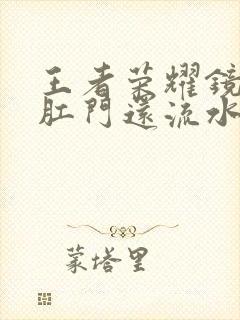 王者荣耀鏡
肛門還流水
蒙塔里